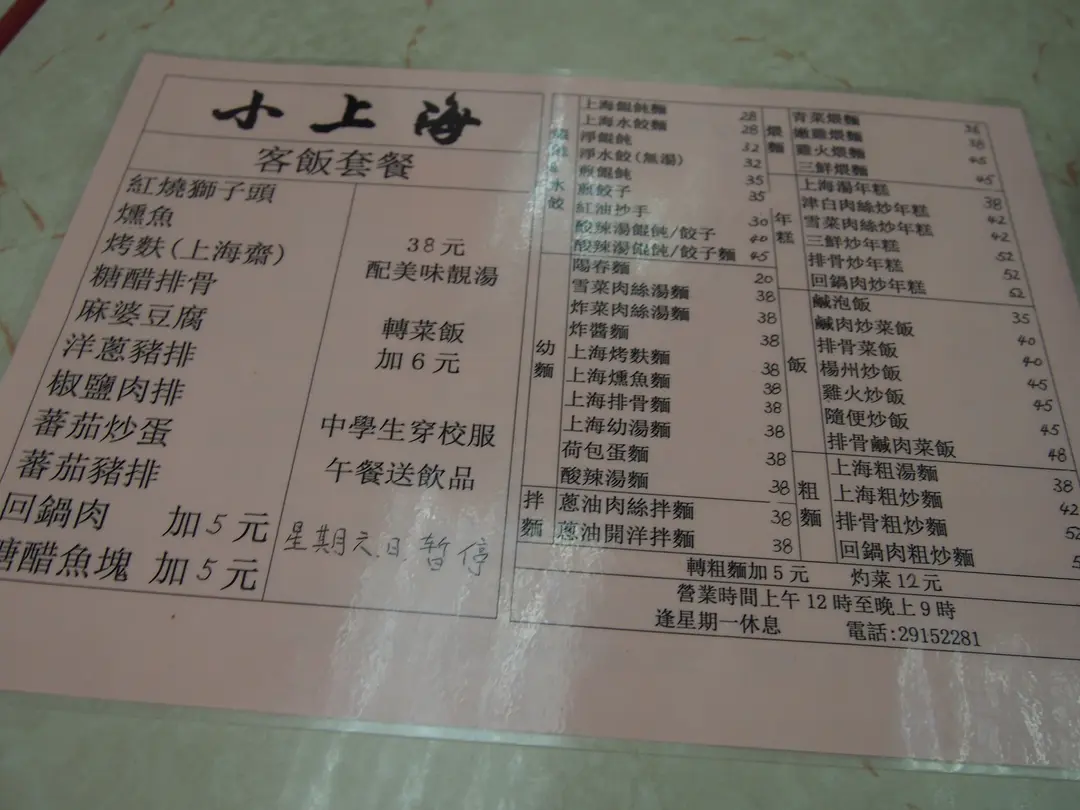 小上海
客飯套餐
紅燒獅子頭
燻魚
烤麩(上海齋)
糖醋排骨
麻婆豆腐
洋蔥豬排
椒鹽肉排
蕃茄炒蛋
蕃茄豬排
回鍋肉 加5元
糖醋魚塊 加5元
38元
配美味靚湯
轉菜飯
加6元
中學生穿校服
午餐送飲品
星期六日暫停
水餃
上海餛飩麵 28
上海水餃麵 28
淨餛飩 32
淨水餃(無湯) 32
煎餛飩 35
煎餃子 35
紅油抄手 30
酸辣湯餛飩/餃子 40
酸辣湯餛飩/餃子麵 45
幼麵
陽春麵 20
雪菜肉絲湯麵 38
炸菜肉絲湯麵 38
炸醬麵 38
上海烤麩麵 38
上海燻魚麵 38
上海排骨麵 38
上海幼湯麵 38
荷包蛋麵 38
酸辣湯麵 38
拌麵
蔥油肉絲拌麵 38
蔥油開洋拌麵 38
煨麵
青菜煨麵
嫩雞煨麵 38
雞火煨麵 45
三鮮煨麵 45
年糕
上海湯年糕 38
津白肉絲炒年糕 42
雪菜肉絲炒年糕 42
三鮮炒年糕 52
排骨炒年糕 52
回鍋肉炒年糕 52
飯
鹹泡飯 35
鹹肉炒菜飯 40
排骨菜飯 40
楊州炒飯 45
雞火炒飯 45
隨便炒飯 45
排骨鹹肉菜飯 48
粗麵
上海粗湯麵 38
上海粗炒麵 42
排骨粗炒麵 52
回鍋肉粗炒麵
轉粗麵加5元 灼菜12元
營業時間上午12時至晚上9時
逢星期一休息 電話:29152281